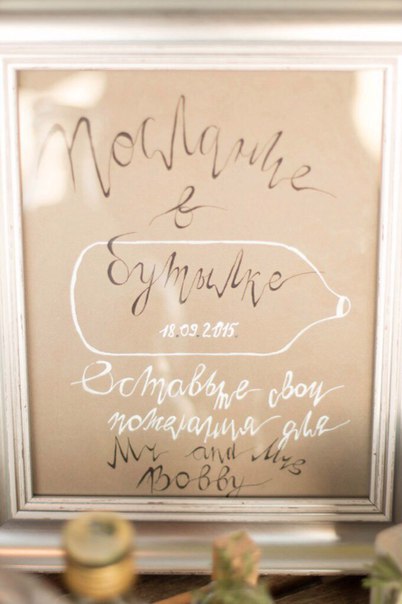 Послание
в
бутылке
18.09.2015
Оставьте свои
пожелания для
Mr and Mrs
Bobby